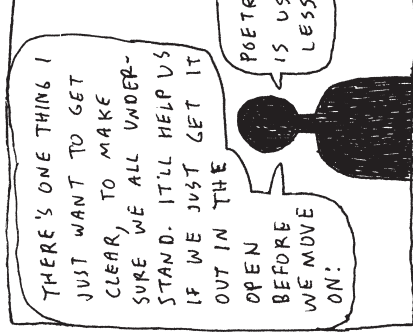 THERE'S ONE THING I
JUST WANT TO GET
CLEAR, TO MAKE
SURE WE ALL UNDER-
STAND. IT'LL HELP US
IF WE JUST GET IT
OUT IN THE
OPEN
BEFORE
WE MOVE
ON:
POETR
IS US
LESS